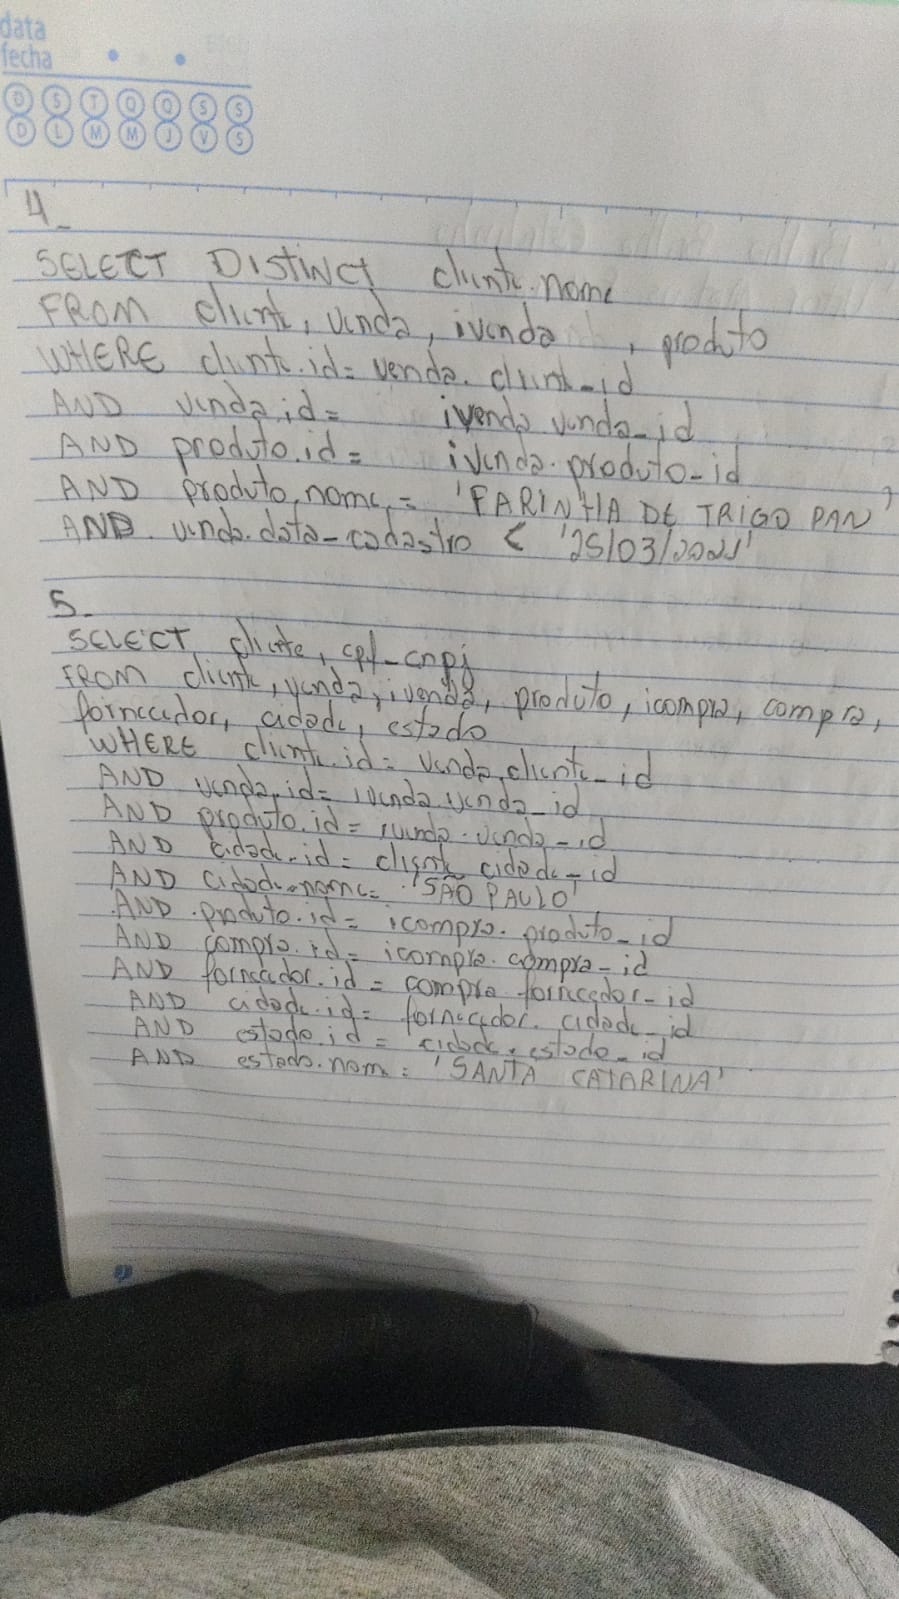 data
fecha
D S T Q Q S S
D L M M J V S
4_
SELECT DISTINCT cliente.nome
FROM cliente, venda, ivenda , produto
WHERE cliente.id = venda.client_id
AND venda.id = ivenda venda_id
AND produto.id = ivenda.produto_id
AND produto.nome = 'FARINHA DE TRIGO PAN'
AND venda.data_cadastro < '25/03/2021'
5_
SELECT cliente, cpf_cnpj
FROM cliente, venda, ivenda, produto, icompra, compra,
fornecedor, cidade, estado
WHERE cliente.id = venda.cliente_id
AND venda.id = ivenda.venda_id
AND produto.id = ivenda.venda_id
AND cidade.id = cliente.cidade_id
AND cidade.nome = 'SÃO PAULO'
AND produto.id = icompra.produto_id
AND compra.id = icompra.compra_id
AND fornecedor.id = compra.fornecedor_id
AND cidade.id = fornecedor.cidade_id
AND estado.id = cidade.estado_id
AND estado.nome = 'SANTA CATARINA'